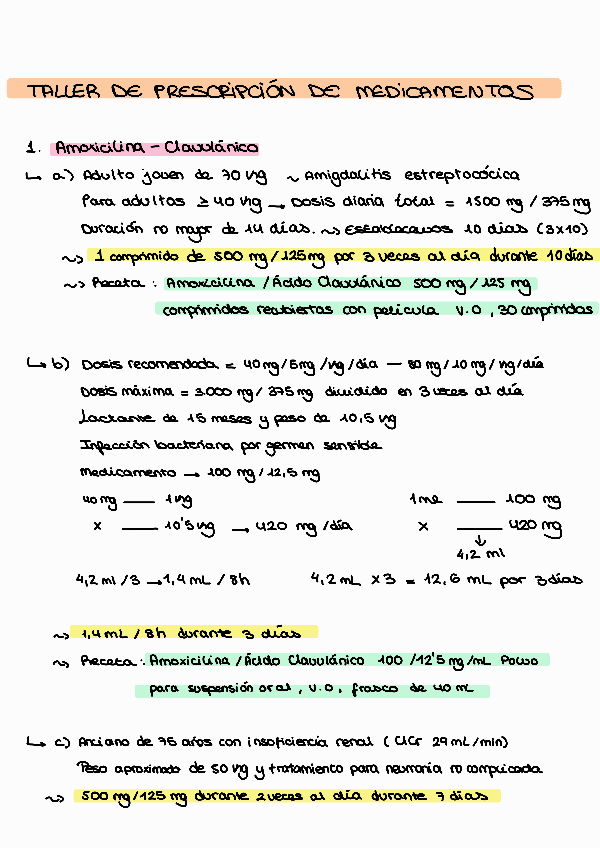 TALLER DE PRESCRIPCIÓN DE MEDICAMENTOS
1. Amoxicilina - Clavulánico
↳ a) Adulto joven de 70 kg ~ Amigdalitis estreptocócica
Para adultos ≥ 40 kg → Dosis diaria total = 1500 mg / 375 mg
Duración no mayor de 14 días. ~> Establecemos 10 días (3x10)
~> 1 comprimido de 500 mg/125 mg por 3 veces al día durante 10 días
~> Receta: Amoxicilina / Ácido Clavulánico 500 mg / 125 mg
comprimidos recubiertos con película V.O, 30 comprimidos
↳ b) Dosis recomendada = 40 mg/5mg/kg/día — 80 mg/10 mg/kg/día
Dosis máxima = 3.000 mg/ 375 mg dividido en 3 veces al día
Lactante de 15 meses y peso de 10,5 kg
Infección bacteriana por germen sensible
Medicamento → 100 mg / 12,5 mg
40 mg —— 1 kg 1 ml —— 100 mg
x —— 10'5 kg → 420 mg /día x —— 420 mg
↓
4,2 ml
4,2 ml /3 → 1,4 mL / 8h 4,2 mL x3 = 12,6 mL por 3 días
~> 1,4 mL / 8h durante 3 días
~> Receta: Amoxicilina / Ácido Clavulánico 100 /12'5 mg/mL Polvo
para suspensión oral, V.O, frasco de 40 mL
↳ c) Anciano de 75 años con insuficiencia renal (ClCr 29 mL/min)
Peso aproximado de 50 kg y tratamiento para neumonía no complicada
~> 500 mg/125 mg durante 2 veces al día durante 7 días